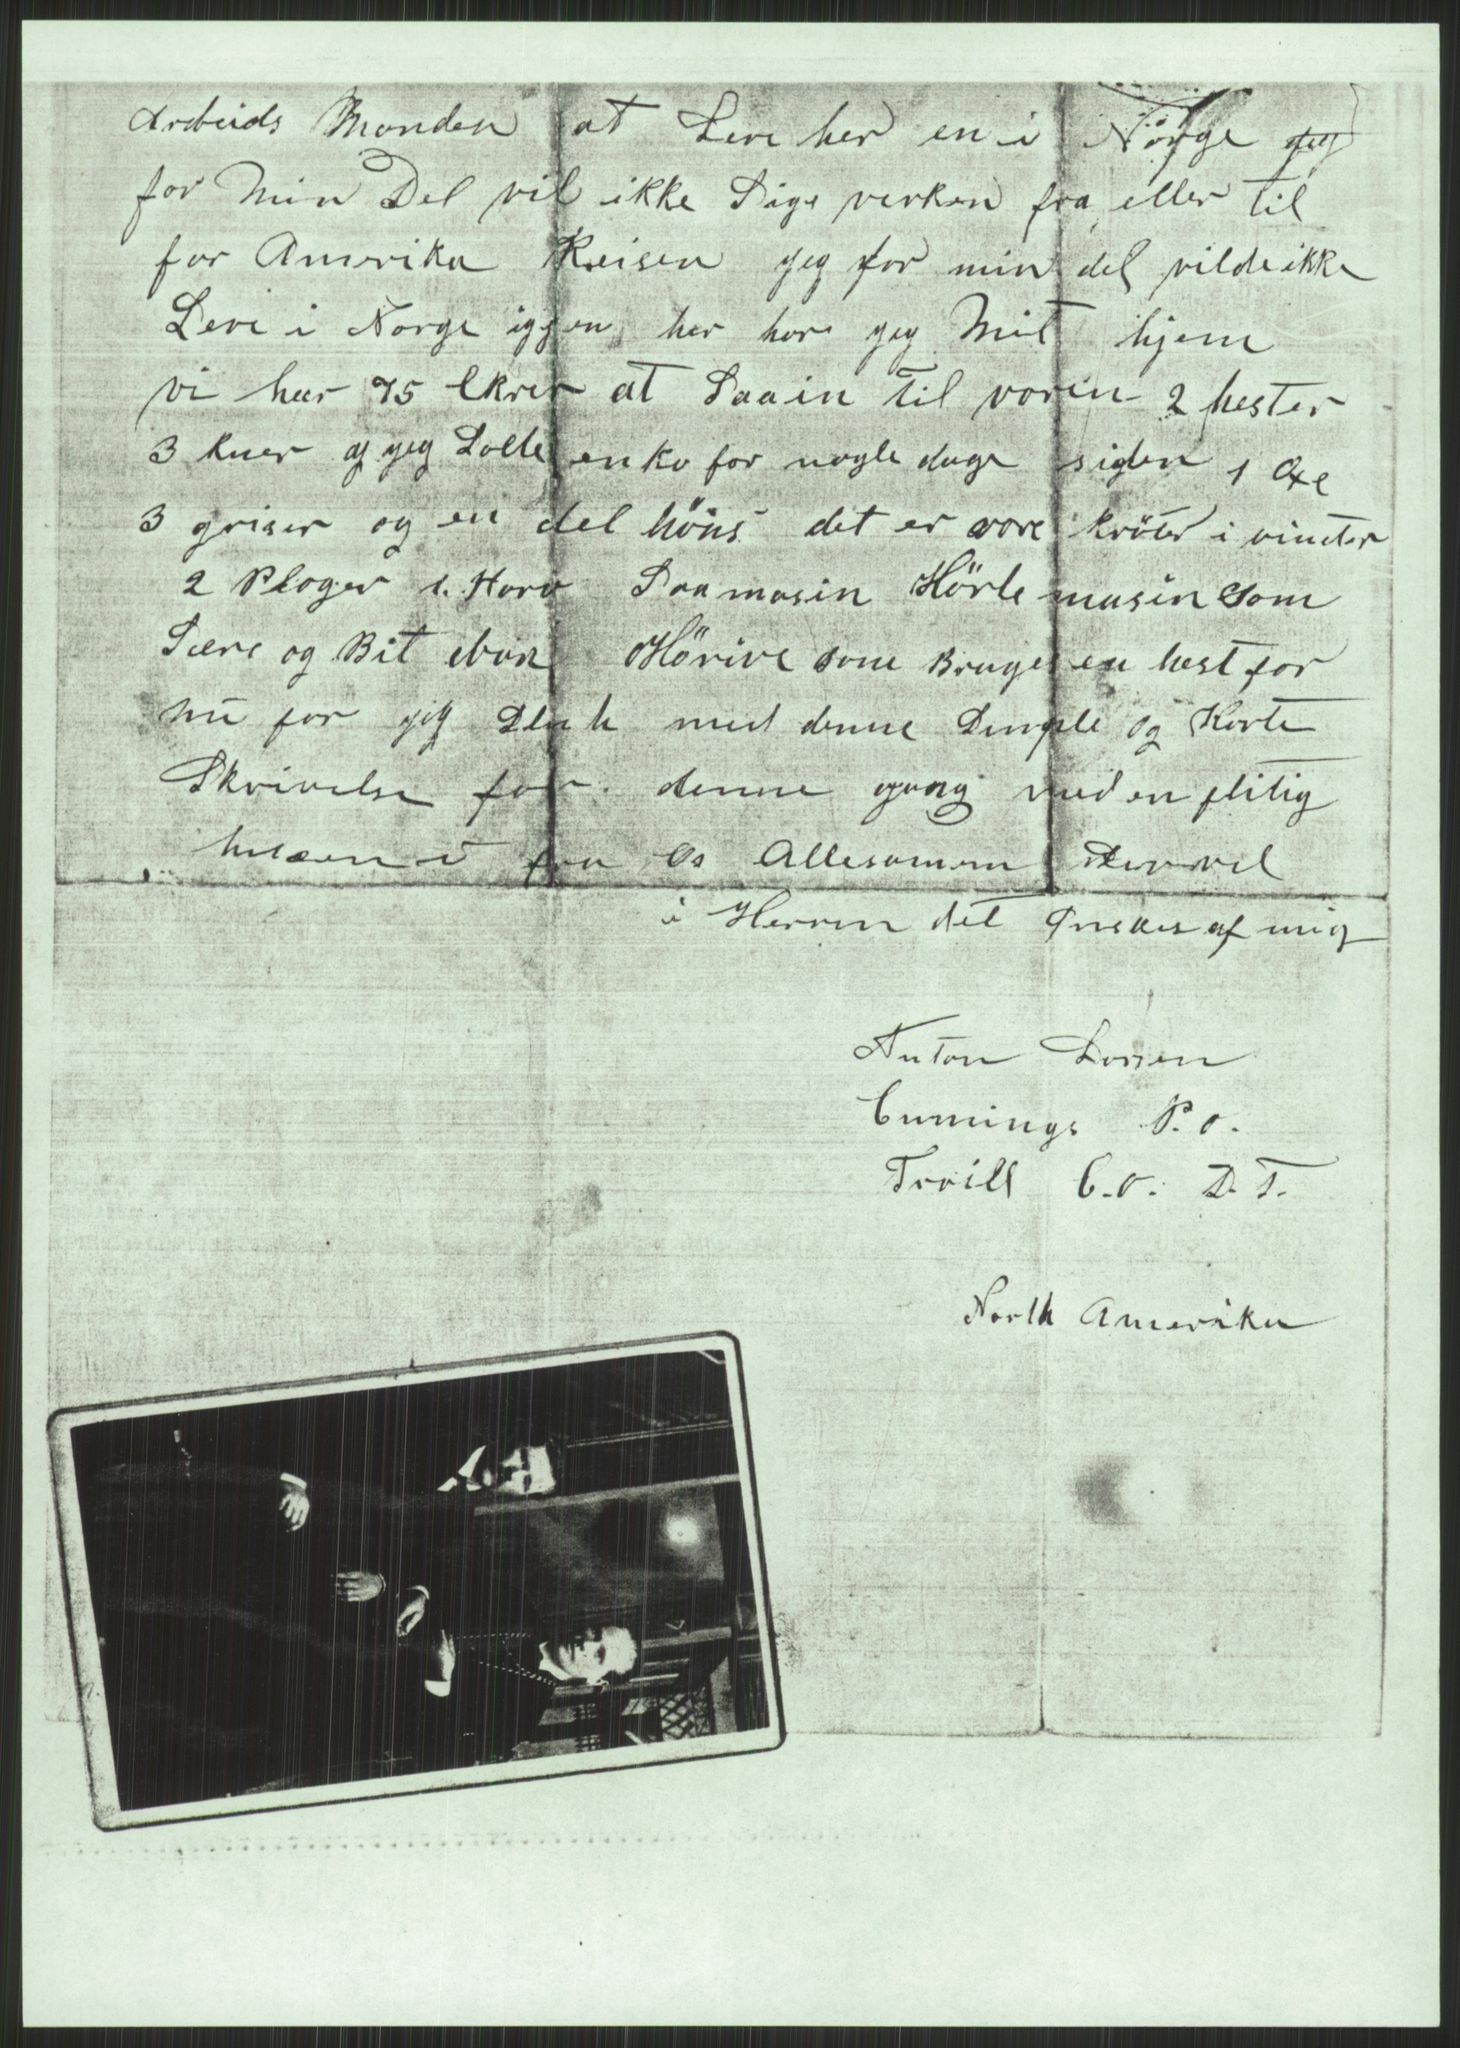 Arbeids Manden at Leve her en i Norge jeg
for Min Del vil ikke Sige verken fra eller til
for Amerika Reisen jeg for min del vilde ikke
Leve i Norge iggen her har jeg Mit hjem
vi har 75 Ekrer at Saain til vaaren 2 hester
3 kuer og jeg Solte en ko for nogle dage siden 1 Oxe
3 griser og en del höns det er vore kröter i vinter
2 Ploger 1. Harv Saamasin Hörle masin som
Skere og Bit
Hörive som Bruges en hest for
nu for jeg Slut med denne Simple og Korte
Skrivelse for denne gang med en flitig
hilsen i fra Os Allesamen Lev vel
i Herren det Ønskes af mig
Anton Larsen
Cumings P. O.
Traill C.O. D. T.
North Amerika